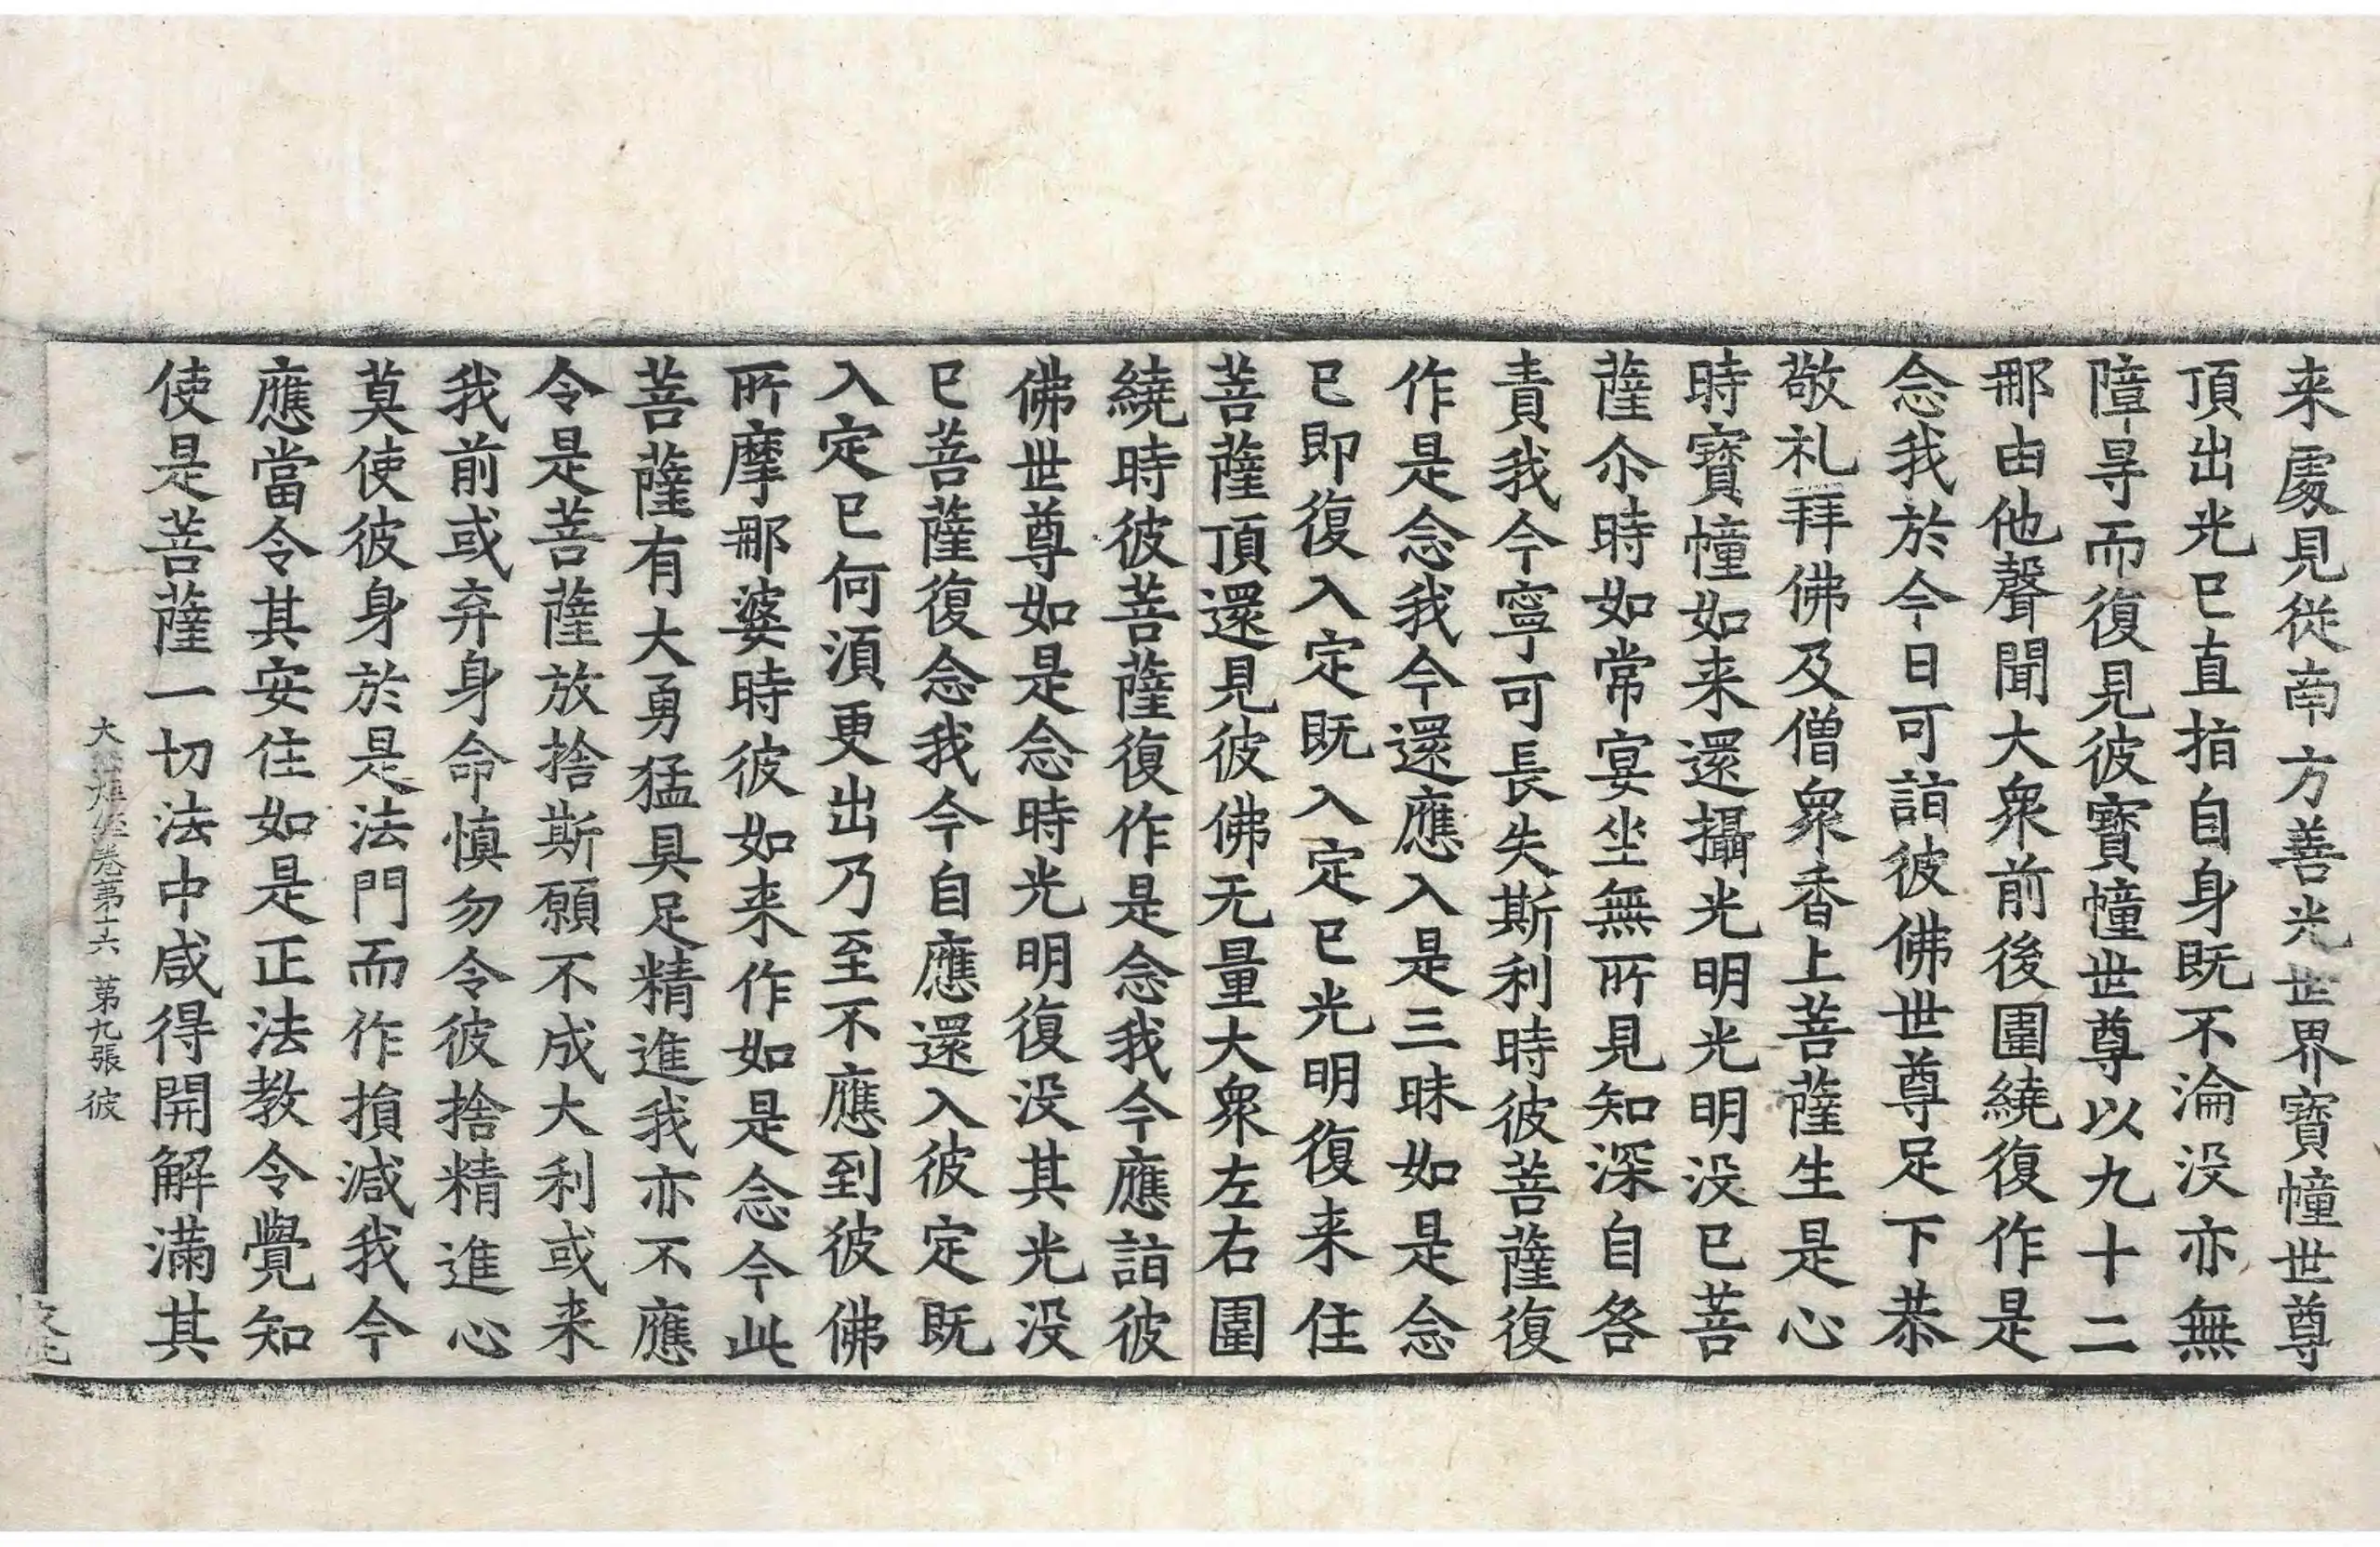 来處見從南方善光世界寶幢世尊
頂出光已直指自身既不淪没亦無
障㝵而復見彼寶幢世尊以九十二
那由他聲聞大衆前後圍繞復作是
念我於今日可詣彼佛世尊足下恭
敬礼拜佛及僧衆香上菩薩生是心
時寶幢如来還攝光明光明没已菩
薩尒時如常宴坐無所見知深自咎
責我今寧可長失斯利時彼菩薩復
作是念我今還應入是三昧如是念
已即復入定既入定已光明復来住
菩薩頂還見彼佛无量大衆左右圍
繞時彼菩薩復作是念我今應詣彼
佛世尊如是念時光明復没其光没
已菩薩復念我今自應還入彼定既
入定已何須更出乃至不應到彼佛
所摩那婆時彼如来作如是念今此
菩薩有大勇猛具足精進我亦不應
令是菩薩放捨斯願不成大利或来
我前或弃身命慎勿令彼捨精進心
莫使彼身於是法門而作損減我今
應當令其安住如是正法教令覺知
使是菩薩一切法中咸得開解滿其
大 卷第十六 第九張 彼